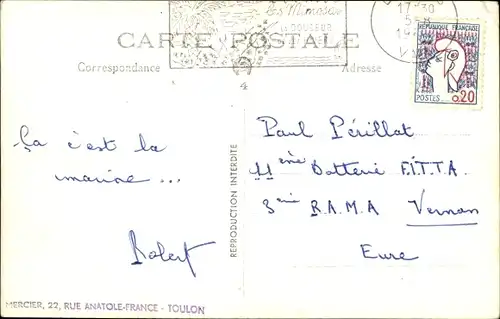 les Mimosas
la douceur
17-30
5-8
CARTE POSTALE
Correspondance
Adresse
4
RÉPUBLIQUE FRANÇAISE
POSTES 0,20
Ça c'est la
marine ...
Robert
REPRODUCTION INTERDITE
Paul Périllat
11ème Batterie F.I.T.T.A.
3ème R.A.M.A Vernon
Eure
MERCIER, 22, RUE ANATOLE-FRANCE - TOULON